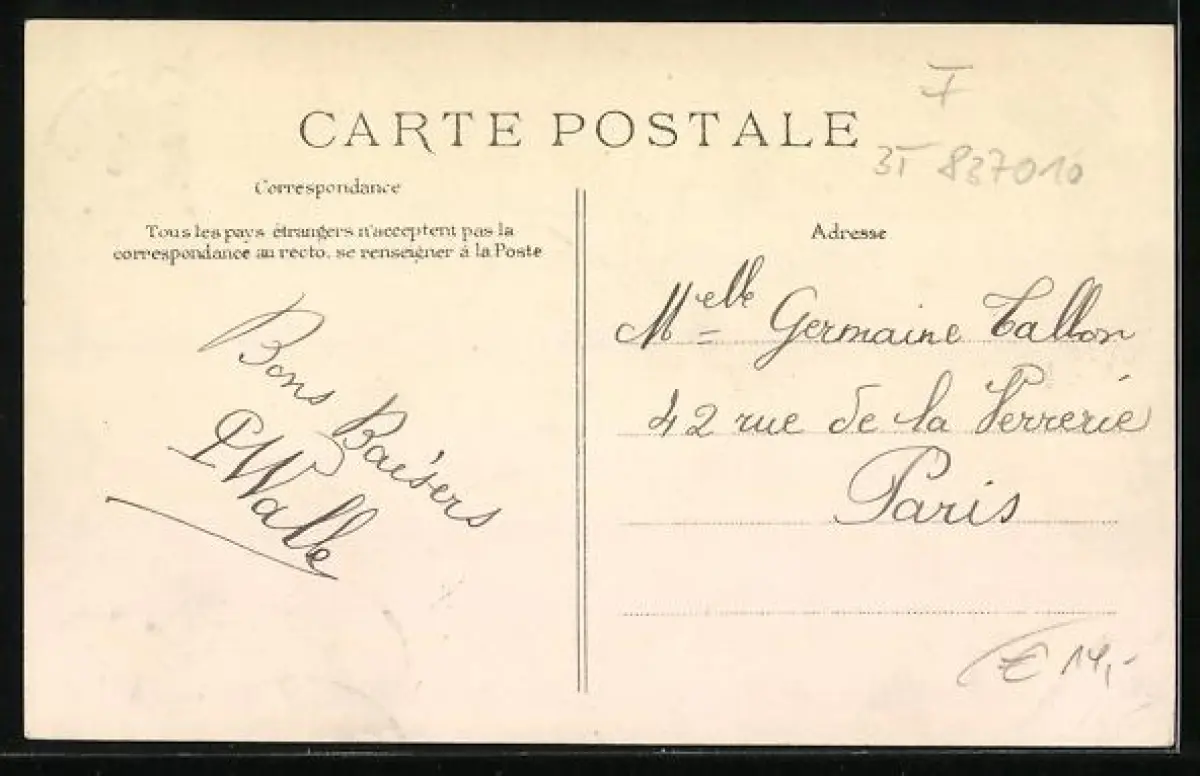 CARTE POSTALE
F
3T 837010
Correspondance
Tous les pays étrangers n'acceptent pas la
correspondance au recto, se renseigner à la Poste
Bons Baisers
PWalle
Adresse
Melle Germaine Tallon
42 rue de la Verrerie
Paris
€ 14,-